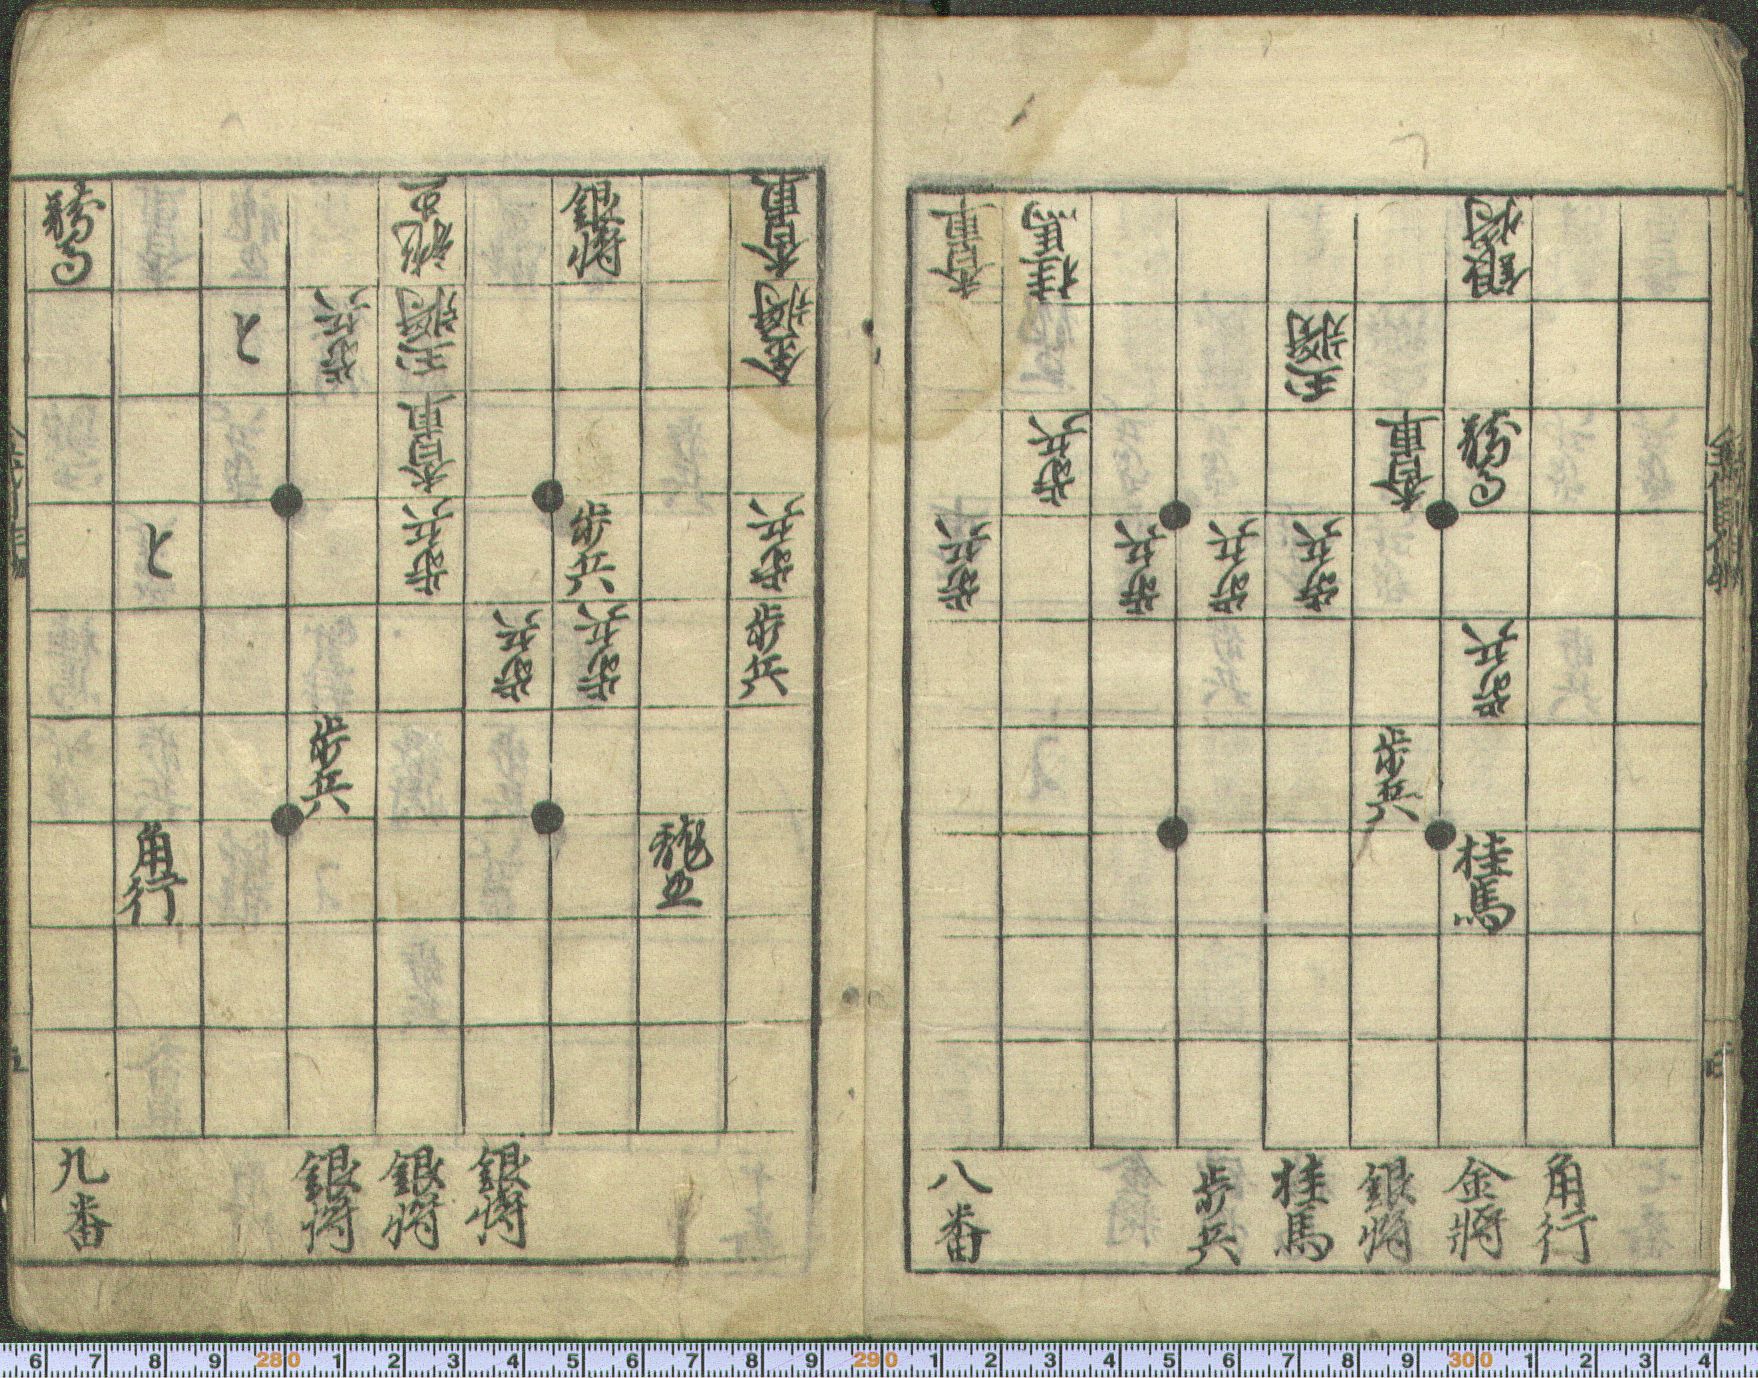 香車
桂馬
銀将
玉将
歩兵
香車
龍馬
歩兵
歩兵
歩兵
歩兵
歩兵
歩兵
桂馬
八番
歩兵
桂馬
銀将
金将
角行
龍馬
龍王
銀将
香車
と
歩兵
玉将
金将
香車
と
歩兵
歩兵
歩兵
歩兵
歩兵
歩兵
歩兵
角行
龍王
九番
銀将
銀将
銀将
6 7 8 9 280 1 2 3 4 5 6 7 8 9 290 1 2 3 4 5 6 7 8 9 300 1 2 3 4